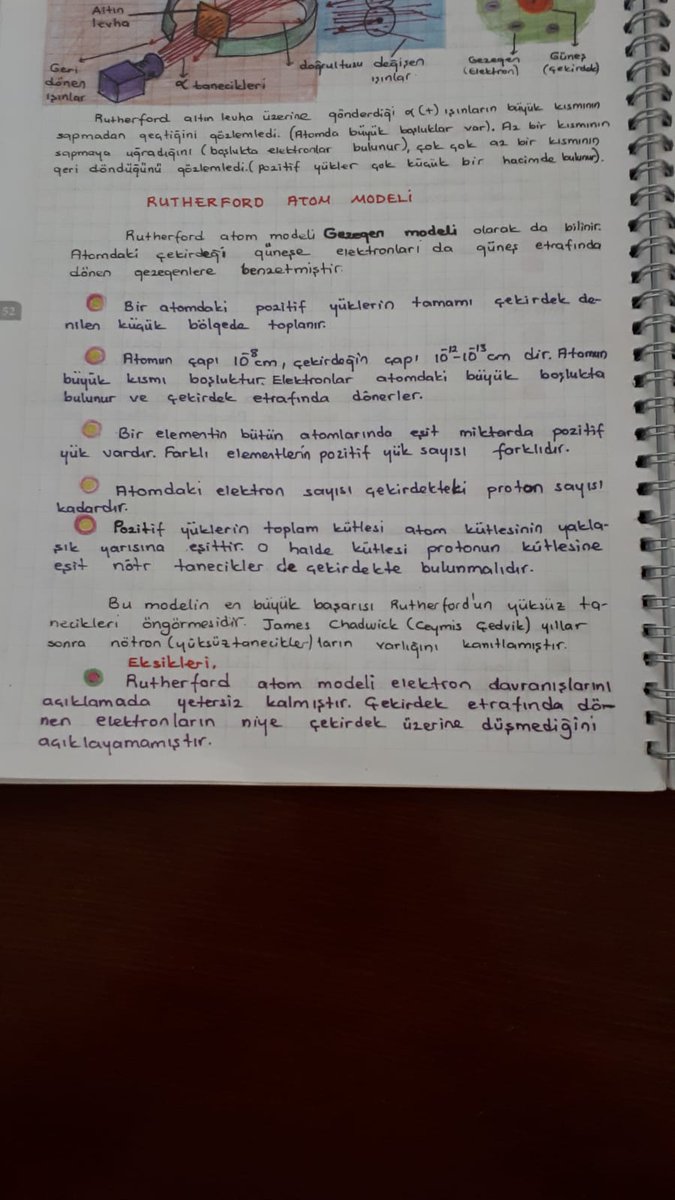 Altın
levha
Geri
dönen
ışınlar
α tanecikleri
doğrultusu değişen
ışınlar
Gezegen
(elektron)
Güneş
(çekirdek)
Rutherford altın levha üzerine gönderdiği α (+) ışınların büyük kısmının
sapmadan geçtiğini gözlemledi. (Atomda büyük boşluklar var). Az bir kısmının
sapmaya uğradığını (boşlukta elektronlar bulunur), çok çok az bir kısmının
geri döndüğünü gözlemledi.( pozitif yükler çok küçük bir hacimde bulunur).
RUTHERFORD ATOM MODELİ
Rutherford atom modeli Gezegen modeli olarak da bilinir.
Atomdaki çekirdeği güneşe elektronları da güneş etrafında
dönen gezegenlere benzetmiştir.
52
Bir atomdaki pozitif yüklerin tamamı çekirdek de-
nilen küçük bölgede toplanır.
Atomun çapı 10⁻⁸cm, çekirdeğin çapı 10⁻¹²-10⁻¹³cm dir. Atomun
büyük kısmı boşluktur. Elektronlar atomdaki büyük boşlukta
bulunur ve çekirdek etrafında dönerler.
Bir elementin bütün atomlarında eşit miktarda pozitif
yük vardır. Farklı elementlerin pozitif yük sayısı farklıdır.
Atomdaki elektron sayısı çekirdekteki proton sayısı
kadardır.
Pozitif yüklerin toplam kütlesi atom kütlesinin yakla-
şık yarısına eşittir. O halde kütlesi protonun kütlesine
eşit nötr tanecikler de çekirdekte bulunmalıdır.
Bu modelin en büyük başarısı Rutherford'un yüksüz ta-
necikleri öngörmesidir. James Chadwick (Ceymis Çedvik) yıllar
sonra nötron (yüksüz tanecikler) ların varlığını kanıtlamıştır.
Eksikleri,
Rutherford atom modeli elektron davranışlarını
açıklamada yetersiz kalmıştır. Çekirdek etrafında dö-
nen elektronların niye çekirdek üzerine düşmediğini
açıklayamamıştır.